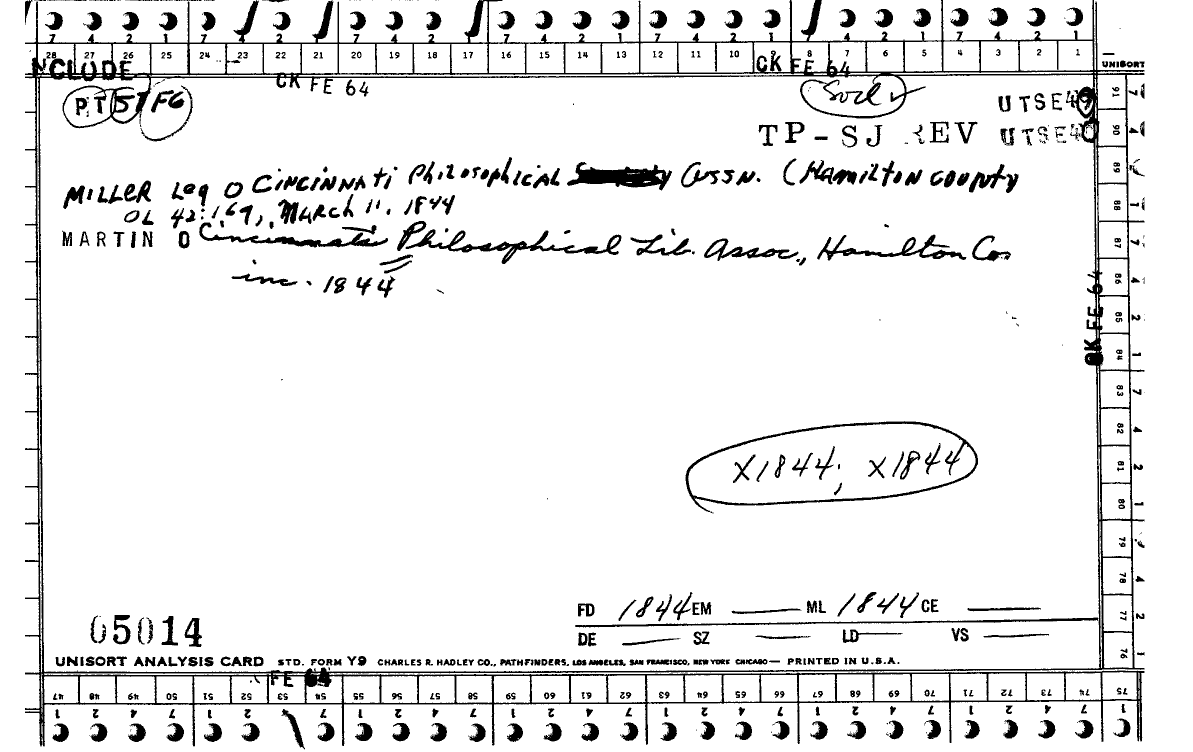 7 4 2 1 7 4 2 1 7 4 2 1 7 4 2 1 7 4 2 1 7 4 2 1 7 4 2 1
28 27 26 25 24 23 22 21 20 19 18 17 16 15 14 13 12 11 10 9 8 7 6 5 4 3 2 1
NCLUDE CK FE 64 CK FE 64 UNISORT
PT 5T F6 UTSE49
TP-SJ REV UTSE40
MILLER Leg O CINCINNATI PHILOSOPHICAL ASSN. (HAMILTON COUNTY
OL 42:169, MARCH 11, 1844
MARTIN O Cincinnati Philosophical Lib. Assoc., Hamilton Co
inc. 1844
CK FE 64
X1844; X1844
FD 1844 EM ML 1844 CE
DE SZ LD VS
05014
UNISORT ANALYSIS CARD STD. FORM Y9 CHARLES R. HADLEY CO., PATHFINDERS, LOS ANGELES, SAN FRANCISCO, NEW YORK CHICAGO — PRINTED IN U.S.A.
FE 64
47 48 49 50 51 52 53 54 55 56 57 58 59 60 61 62 63 64 65 66 67 68 69 70 71 72 73 74 75
1 2 4 7 1 2 4 7 1 2 4 7 1 2 4 7 1 2 4 7 1 2 4 7 1 2 4 7 1
91 90 89 88 87 86 85 84 83 82 81 80 79 78 77 76